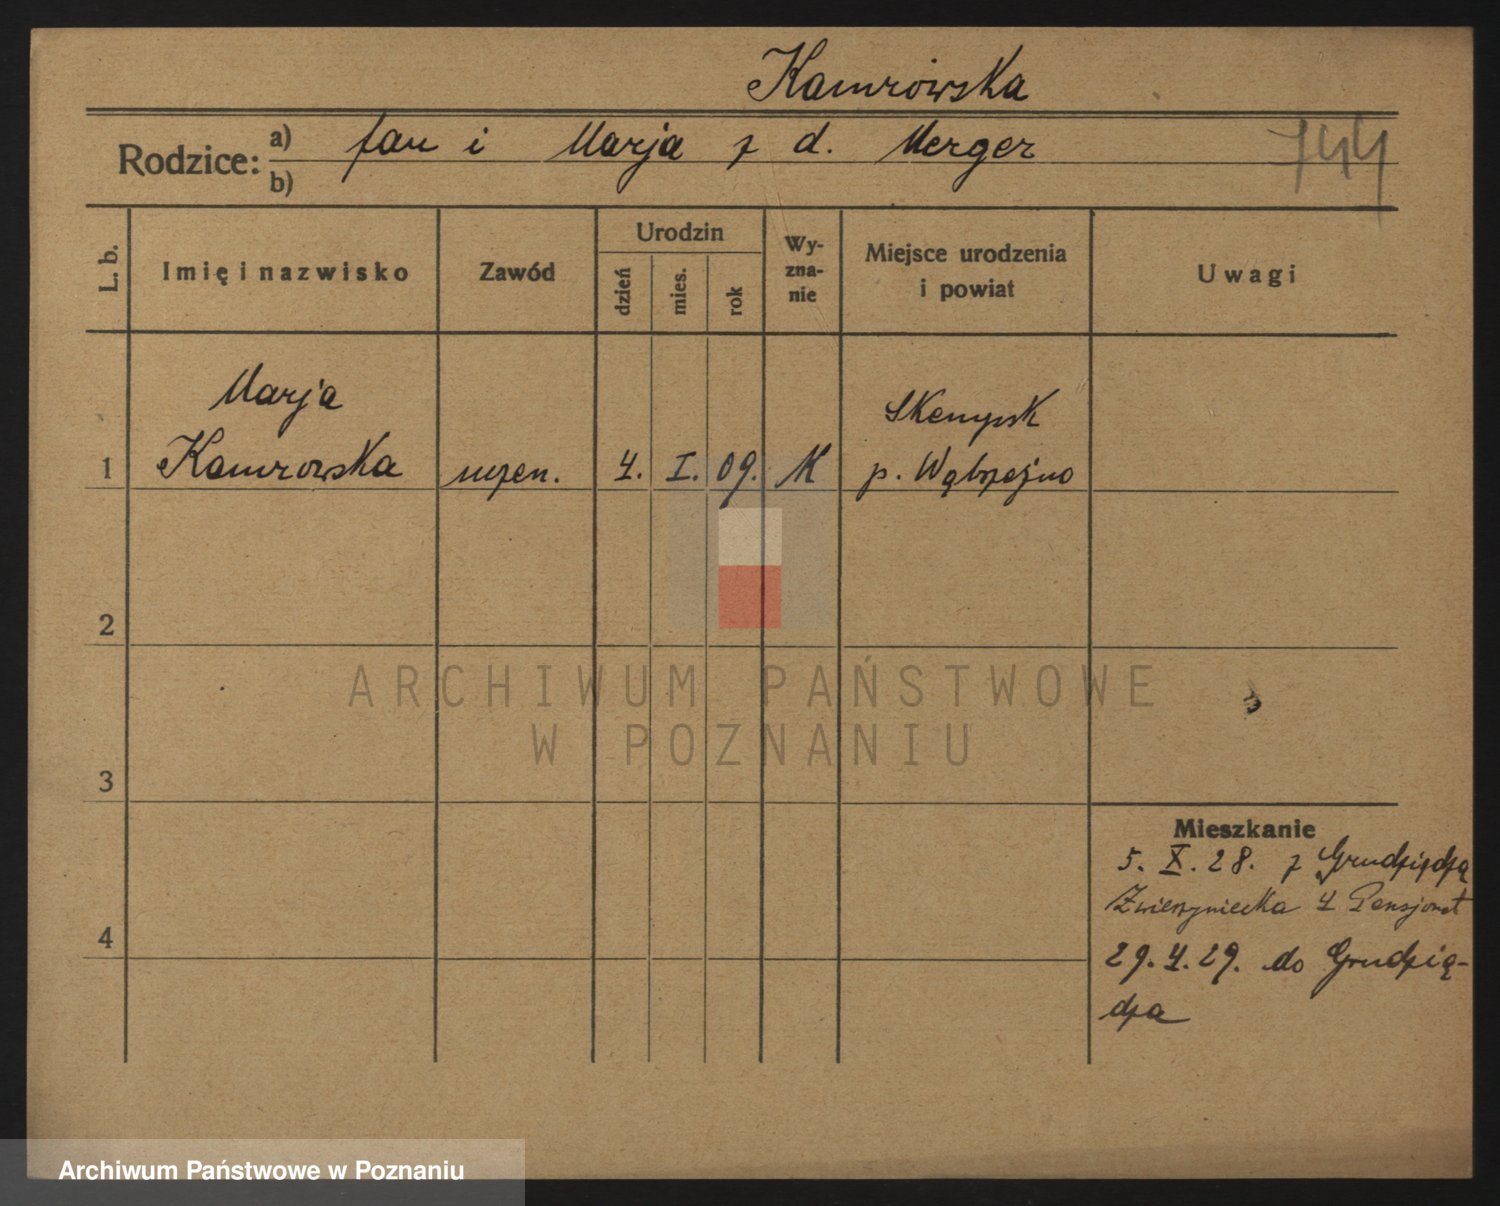 Kamrowska
Rodzice: a) Jan i Marja z d. Merger
b)
744
L. b.
Imię i nazwisko
Zawód
Urodzin
dzień
mies.
rok
Wy-
zna-
nie
Miejsce urodzenia
i powiat
Uwagi
1
Marja
Kamrowska
uczen.
4.
I.
09.
K
p. Wąbrzeźno
2
3
4
Mieszkanie
5. X. 28. z Grudziądza
Zwierzyniecka 4 Pensjonat
29. 4. 29. do Grudzią-
dza
ARCHIWUM PAŃSTWOWE
W POZNANIU
Archiwum Państwowe w Poznaniu